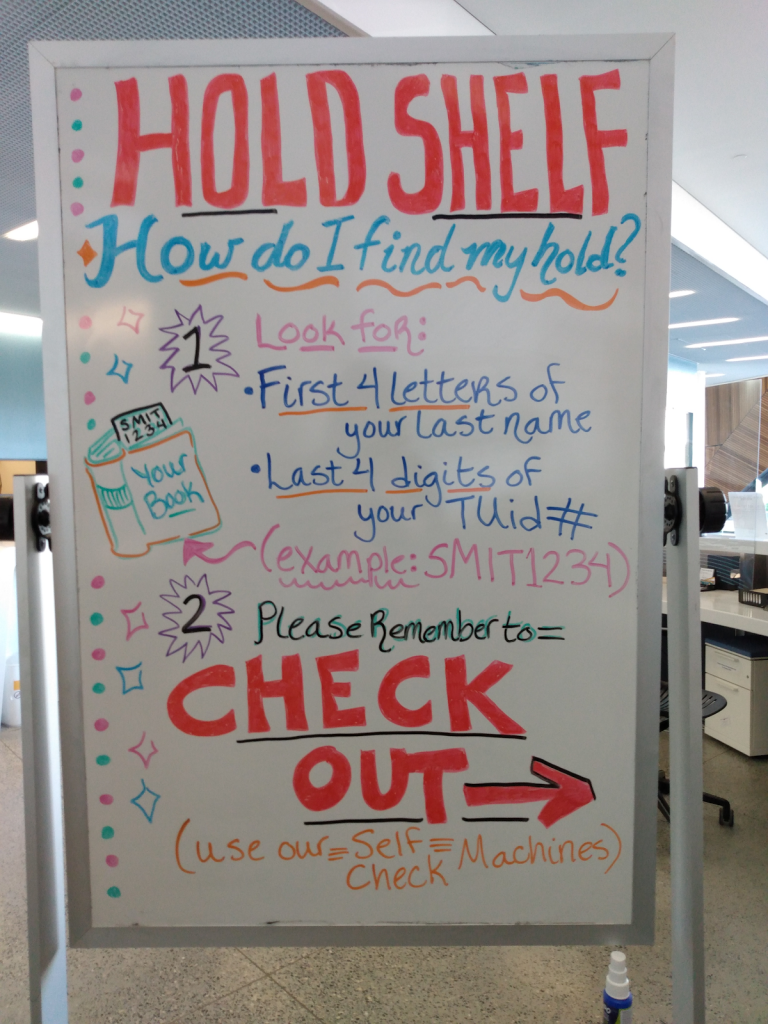 HOLD SHELF
How do I find my hold?
1 Look for:
• First 4 letters of
your last name
• Last 4 digits of
your TUid#
(example: SMIT1234)
SMIT
1234
Your
Book
2 Please Remember to=
CHECK
OUT
(use our Self Machines)
Check